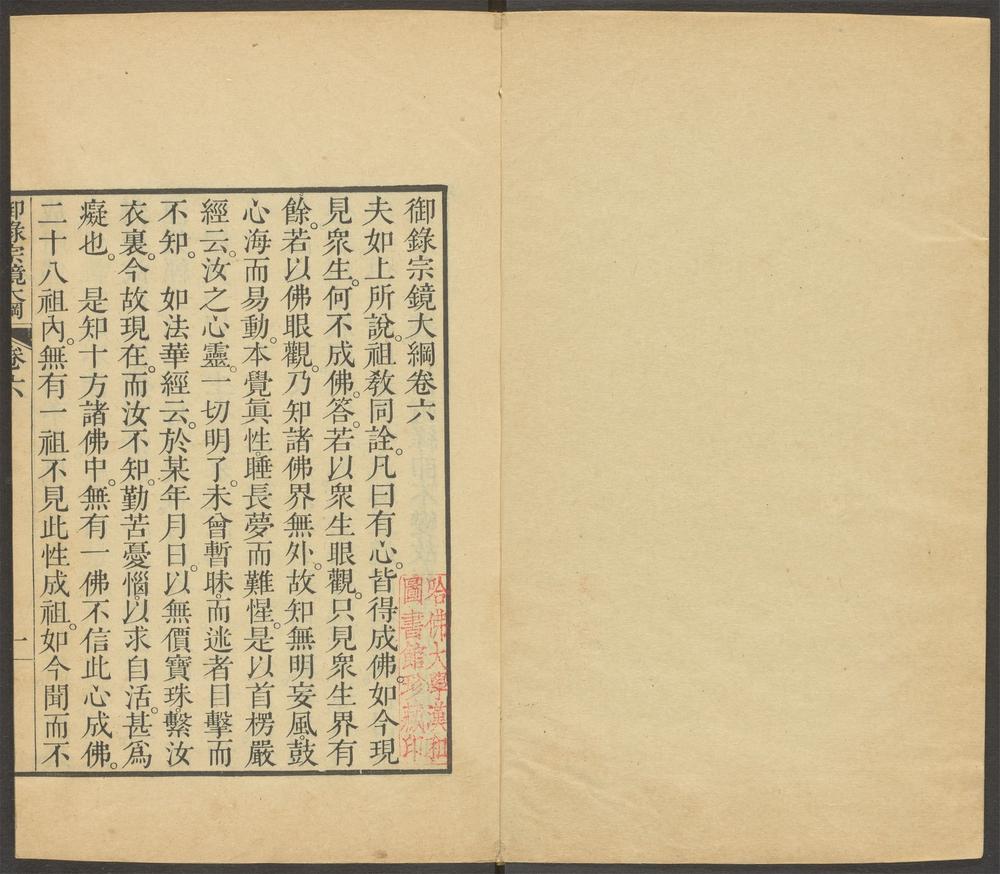 御錄宗鏡大綱卷六
夫如上所說。祖教同詮。凡曰有心。皆得成佛。如今現
見衆生。何不成佛。答。若以衆生眼觀。只見衆生界有
餘。若以佛眼觀。乃知諸佛界無外。故知無明妄風。鼓
心海而易動。本覺眞性。睡長夢而難惺。是以首楞嚴
經云。汝之心靈。一切明了。未曾暫昧。而迷者目擊而
不知。如法華經云。於某年月日。以無價寶珠。繫汝
衣裏。今故現在。而汝不知。勤苦憂惱。以求自活。甚爲
癡也。是知十方諸佛中。無有一佛不信此心成佛。
二十八祖內。無有一祖不見此性成祖。如今聞而不
御錄宗鏡大綱 卷六 一
哈佛大學漢和
圖書館珍藏印